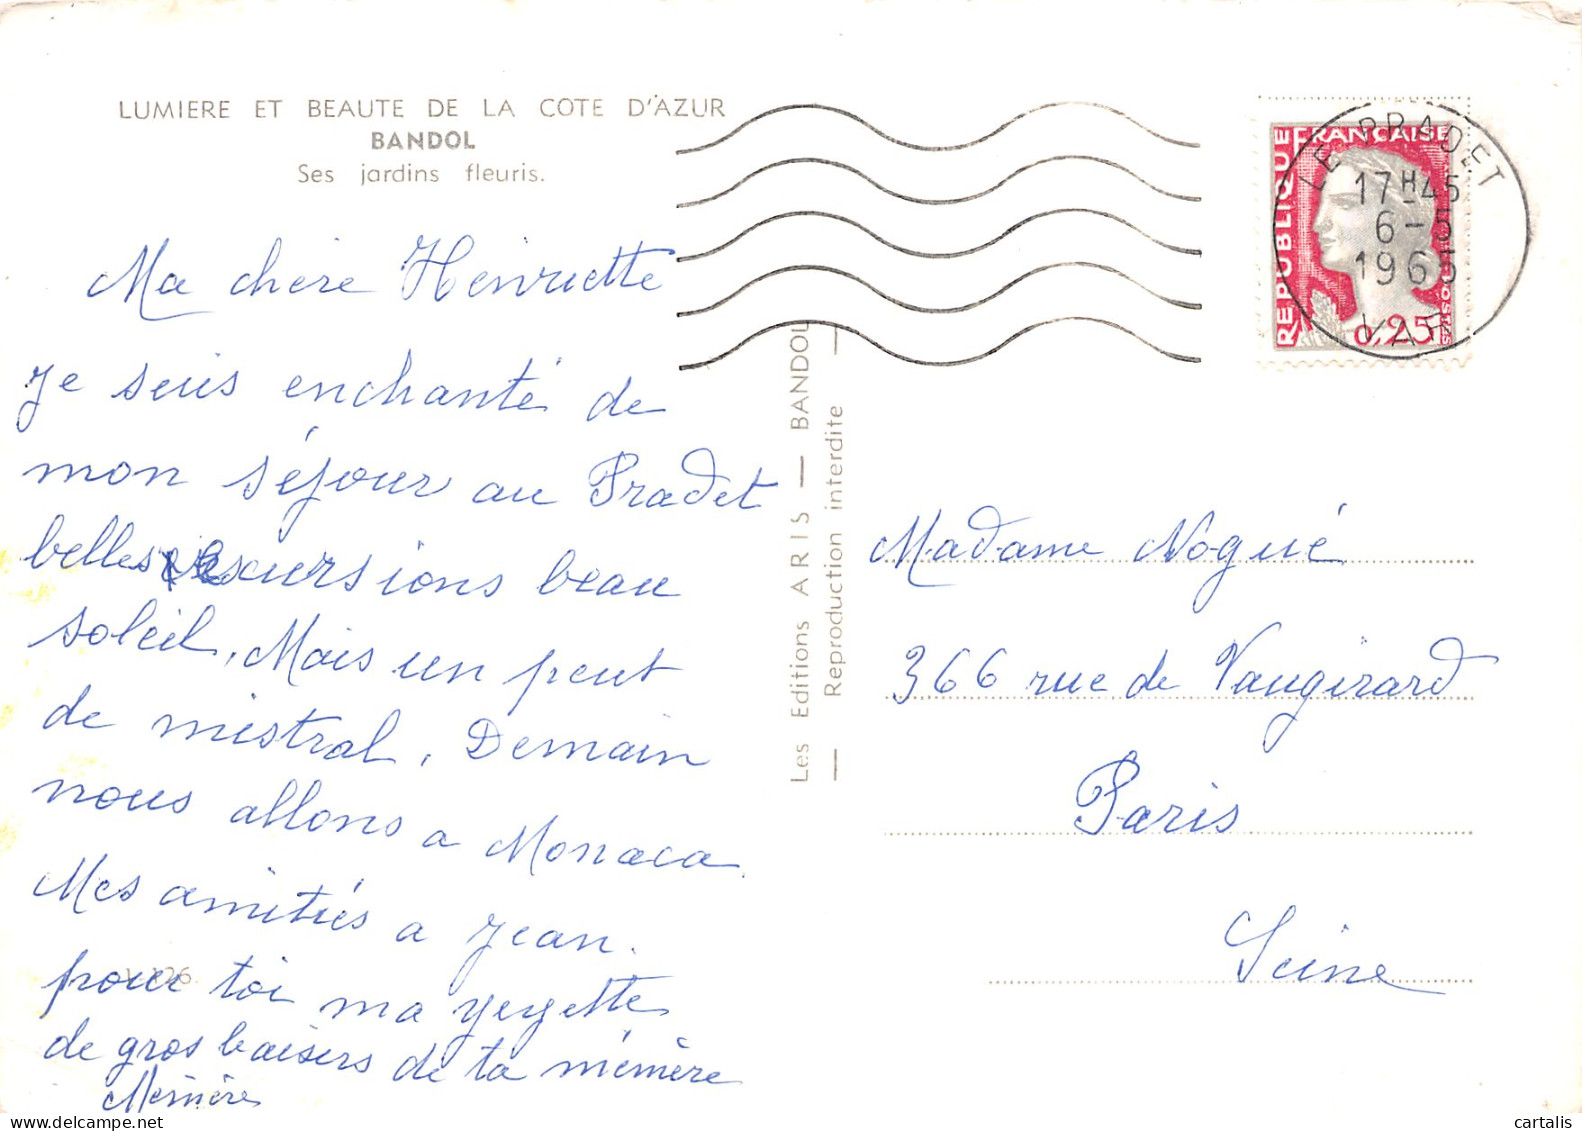 LUMIERE ET BEAUTE DE LA COTE D'AZUR
BANDOL
Ses jardins fleuris.
Ma chère Henriette
Je suis enchanté de
mon séjour au Pradet
belles excursions beau
soleil, Mais un peut
de mistral, Demain
nous allons a Monaca
Mes amitiés a Jean.
pour toi ma yeyette
de gros baisers de ta mémère
Mémère
Les Editions ARIS — BANDOL
— Reproduction interdite —
REPUBLIQUE FRANÇAISE
0,25
LE PRADET
17H45
6-5
1965
VAR
Madame Nogué
366 rue de Vaugirard
Paris
Seine
cartalis